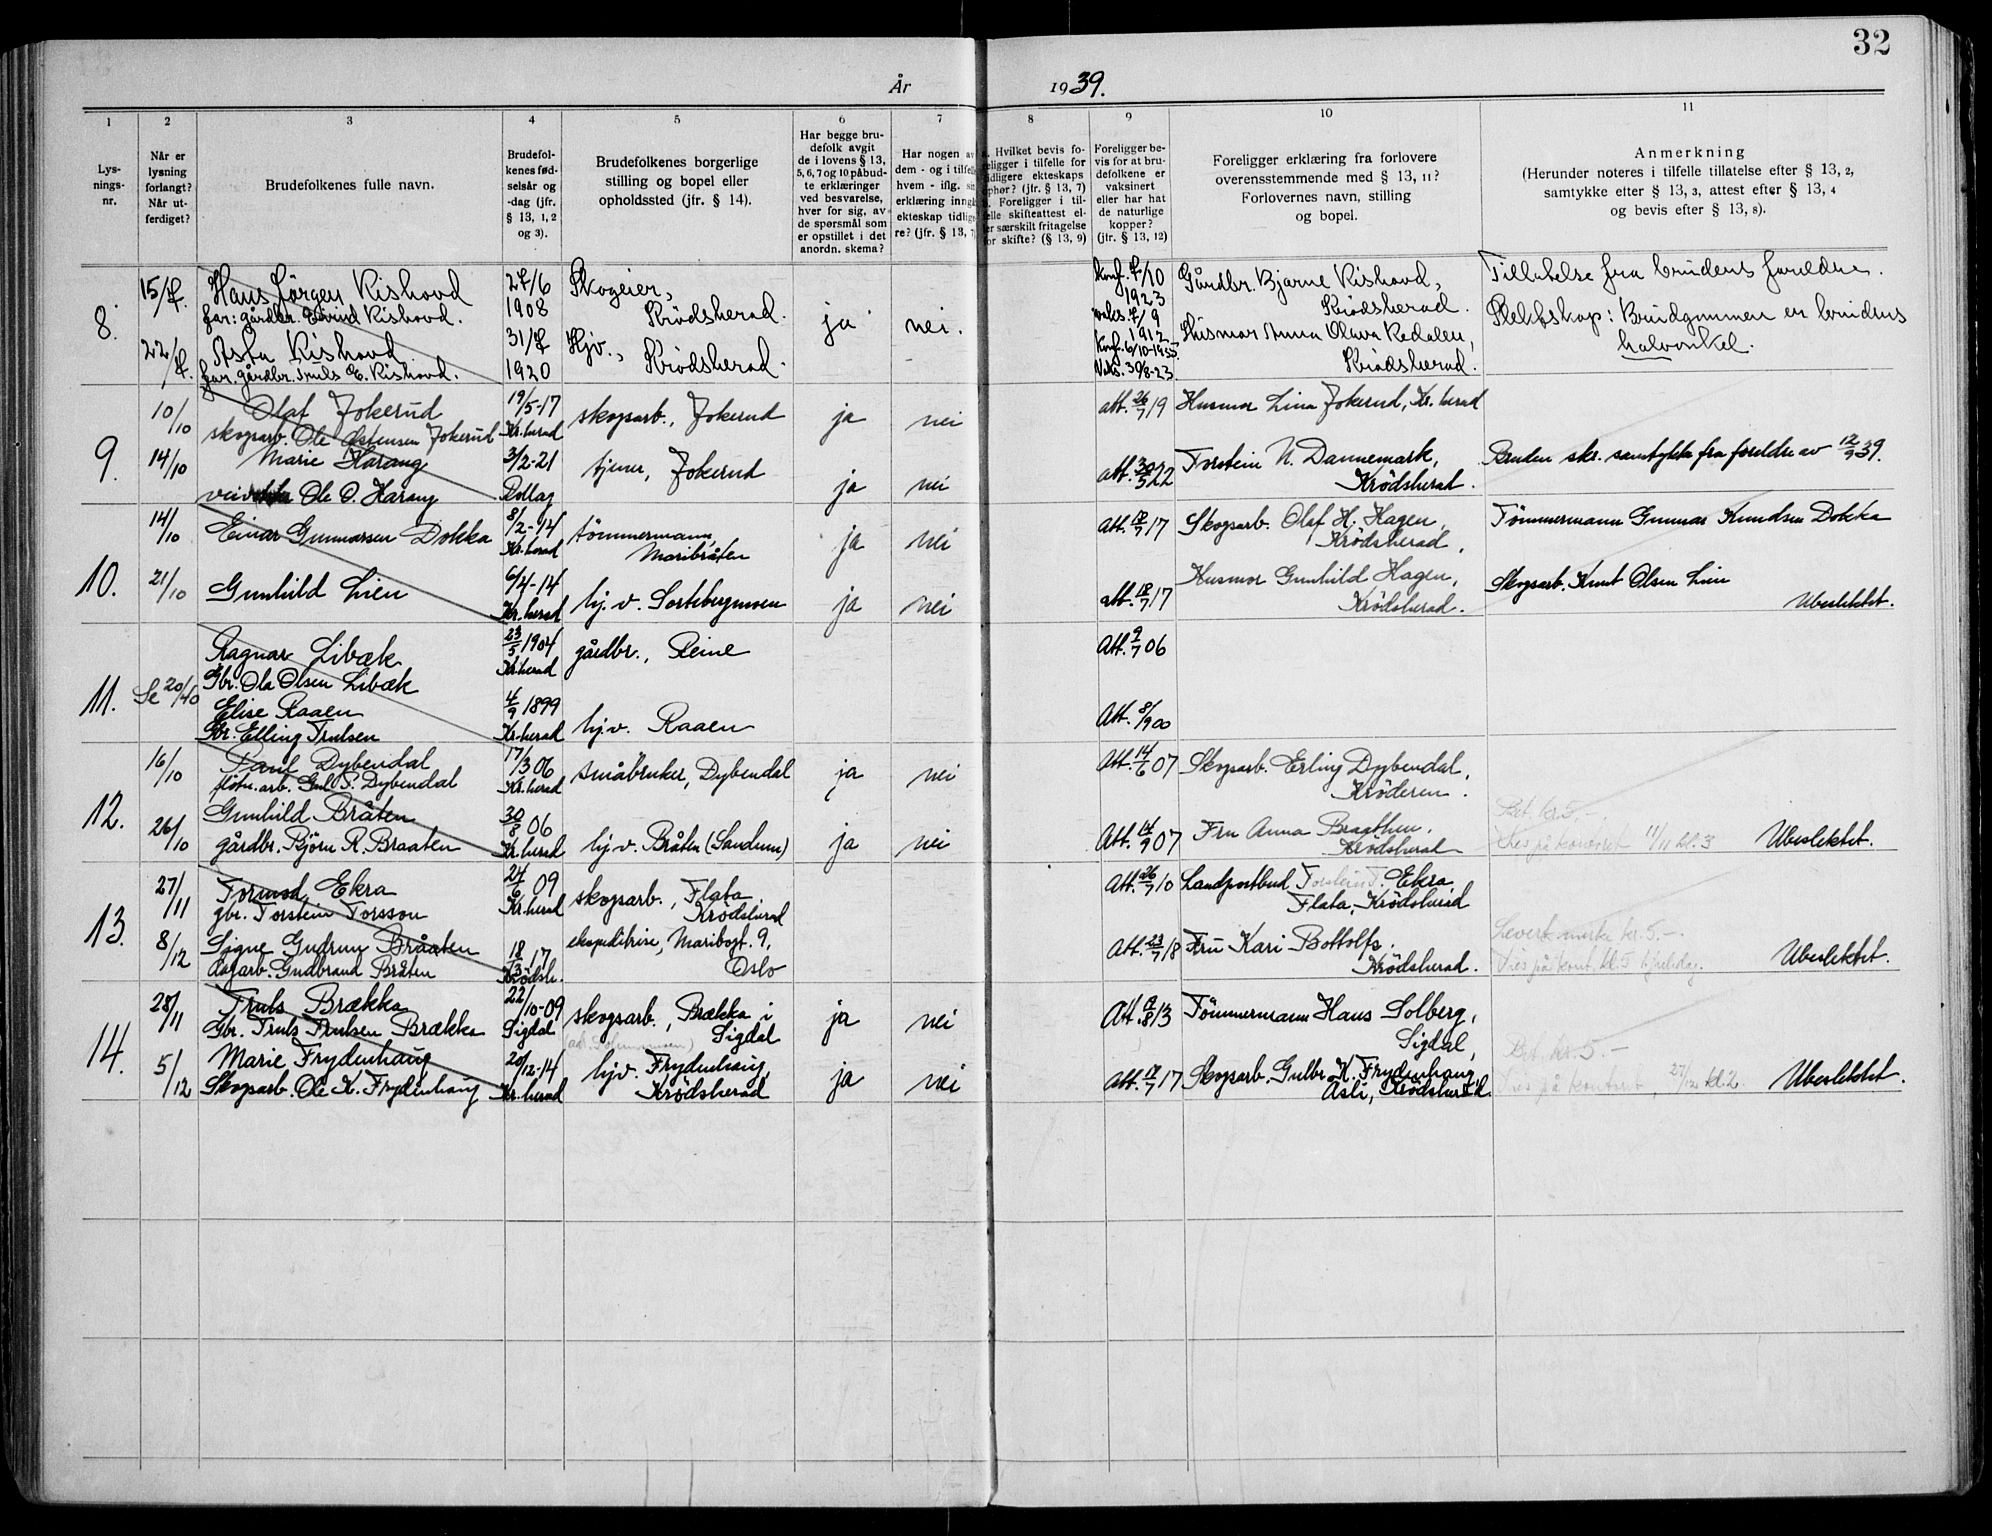 32
År 1939.
1 2 3 4 5 6 7 8 9 10 11
Lys-
nings-
nr.
Når er
lysning
forlangt?
Når ut-
ferdiget?
Brudefolkenes fulle navn.
Brudefol-
kenes fød-
selsår og
-dag (jfr.
§ 13, 1, 2
og 3).
Brudefolkenes borgerlige
stilling og bopel eller
opholdssted (jfr. § 14).
Har begge bru-
defolk avgit
de i lovens § 13,
5, 6, 7 og 10 påbud-
te erklæringer
ved besvarelse,
hver for sig, av
de spørsmål som
er opstillet i det
anordn. skema?
Har nogen av
dem - og i tilfelle
hvem - iflg. sin
erklæring inngå
ekteskap tidlige-
re? (jfr. § 13, 7
Hvilket bevis fo-
religger i tilfelle for
tidligere ekteskaps
ophør? (jfr. § 13, 7)
Foreligger i til-
felle skifteattest el-
er særskilt fritagelse
for skifte? (§ 13, 9)
Foreligger be-
vis for at bru-
defolkene er
vaksinert
eller har hat
de naturlige
kopper?
(jfr. § 13, 12)
Foreligger erklæring fra forlovere
overensstemmende med § 13, 11?
Forlovernes navn, stilling
og bopel.
Anmerkning
(Herunder noteres i tilfelle tillatelse efter § 13, 2,
samtykke efter § 13, 3, attest efter § 13, 4
og bevis efter § 13, 8).
8.
15/7. Hans Jørgen Kishovd 27/6 Skogeier, Konf. 7/10 Gårdbr. Bjarne Kishovd, Tillatelse fra brudens foreldre.
far: gårdbr. Eivind Kishovd. 1908 Krødsherad. ja nei. 1923 Krødsherad.
22/7. Asta Kishovd 31/7 Hjv., vaks. 7/9 1912 Husmor Anna Olava Redalen, Slektskap: Brudgommen er brudens
far. gårdbr. Truls E. Kishovd. 1920 Krødsherad. Konf. 6/10-1935. Vaks. 30/8-23. Krødsherad. halvonkel.
9.
10/10 Olaf Jokerud 19/5-17 skogsarb., Jokerud ja nei att. 26/7 19 Husmor Lina Jokerud, Kr. herad
skogsarb. Ole Østensen Jokerud Kr. herad
14/10 Marie Harang 3/2-21 tjener, Jokerud ja nei att. 30/5 22 Torstein N. Dannemark, Bruden skr. samtykke fra foreldre av 12/9 39.
Ole O. Harang Rollag Krødsherad.
10.
14/10 Einar Gunnarsen Dokka 8/2-14 tømmermann, ja nei att. 18/7 17 Skogsarb. Olaf H. Hagen, Tømmermann Gunnar Knudsen Dokka
Kr. herad Maribråten Krødsherad,
21/10 Gunhild Lien 6/4-14 hj.v. Sortebergmoen ja nei att. 18/7 17 Husmor Gunhild Hagen, Skogsarb. Knut Olsen Lien
Kr. herad Krødsherad. Ubeslektet.
11.
Se 20/40 Ragnar Libæk 23/5 1904 gårdbr., Reine Att. 9/7 06
Gbr. Ola Olsen Libæk Kr. herad
Elise Raaen 4/9 1899 hj.v. Raaen Att. 8/9 00
Gbr. Elling Trulsen Kr. herad
12.
16/10 Paul Dybendal 17/3 06 småbruker, Dybendal ja nei Att. 14/6 07 Skogsarb. Erling Dybendal,
fløtn.arb. Gul P. Dybendal Kr. herad Krøderen.
26/10 Gunhild Bråten 30/8 06 hj.v. Bråten (Sandum) ja nei Att. 14/9 07 Fru Anna Braathen, Bet. kr. 5.-
gårdbr. Bjørn R. Braaten Kr. herad Krødsherad Vies på kontoret 11/11 kl. 3 Ubeslektet.
13.
27/11 Tormod Ekra 24/6 09 skogsarb., Flata, Att. 26/7 10 Landpostbud Torstein T. Ekra,
gbr. Torstein Torsson Kr. herad Krødsherad Flata, Krødsherad
8/12 Signe Gudrun Bråaten 18/3 17 ekspeditrise, Maribogt. 9, Att. 23/7 18 Fru Kari Bottolfs, Levert merke kr. 5.-.
dagarb. Gudbrand Bråten Krødsh. Oslo Krødsherad. Vies på kont. kl. 5 Ubeslektet.
14.
28/11 Truls Brækka 22/10-09 skogsarb., Brækka i ja nei Att. 17/8 13 Tømmermann Hans Solberg,
Gbr. Truls Trulsen Brækka Sigdal Sigdal Sigdal,
5/12 Marie Frydenhaug 20/12-14 hjv. Frydenhaug, ja nei Att. 17/7 17 Skogsarb. Gulbr. K. Frydenhaug, Bet. kr. 5.-
Skogsarb. Ole K. Frydenhaug Kr. herad Krødsherad Åsli, Krødsherad. Vies på kontoret 27/12 kl. 2. Ubeslektet.